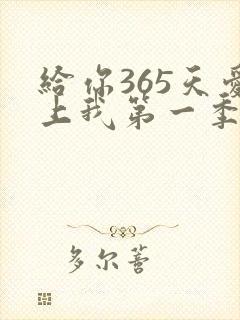 給你365天愛
上我第一季
多尔萻